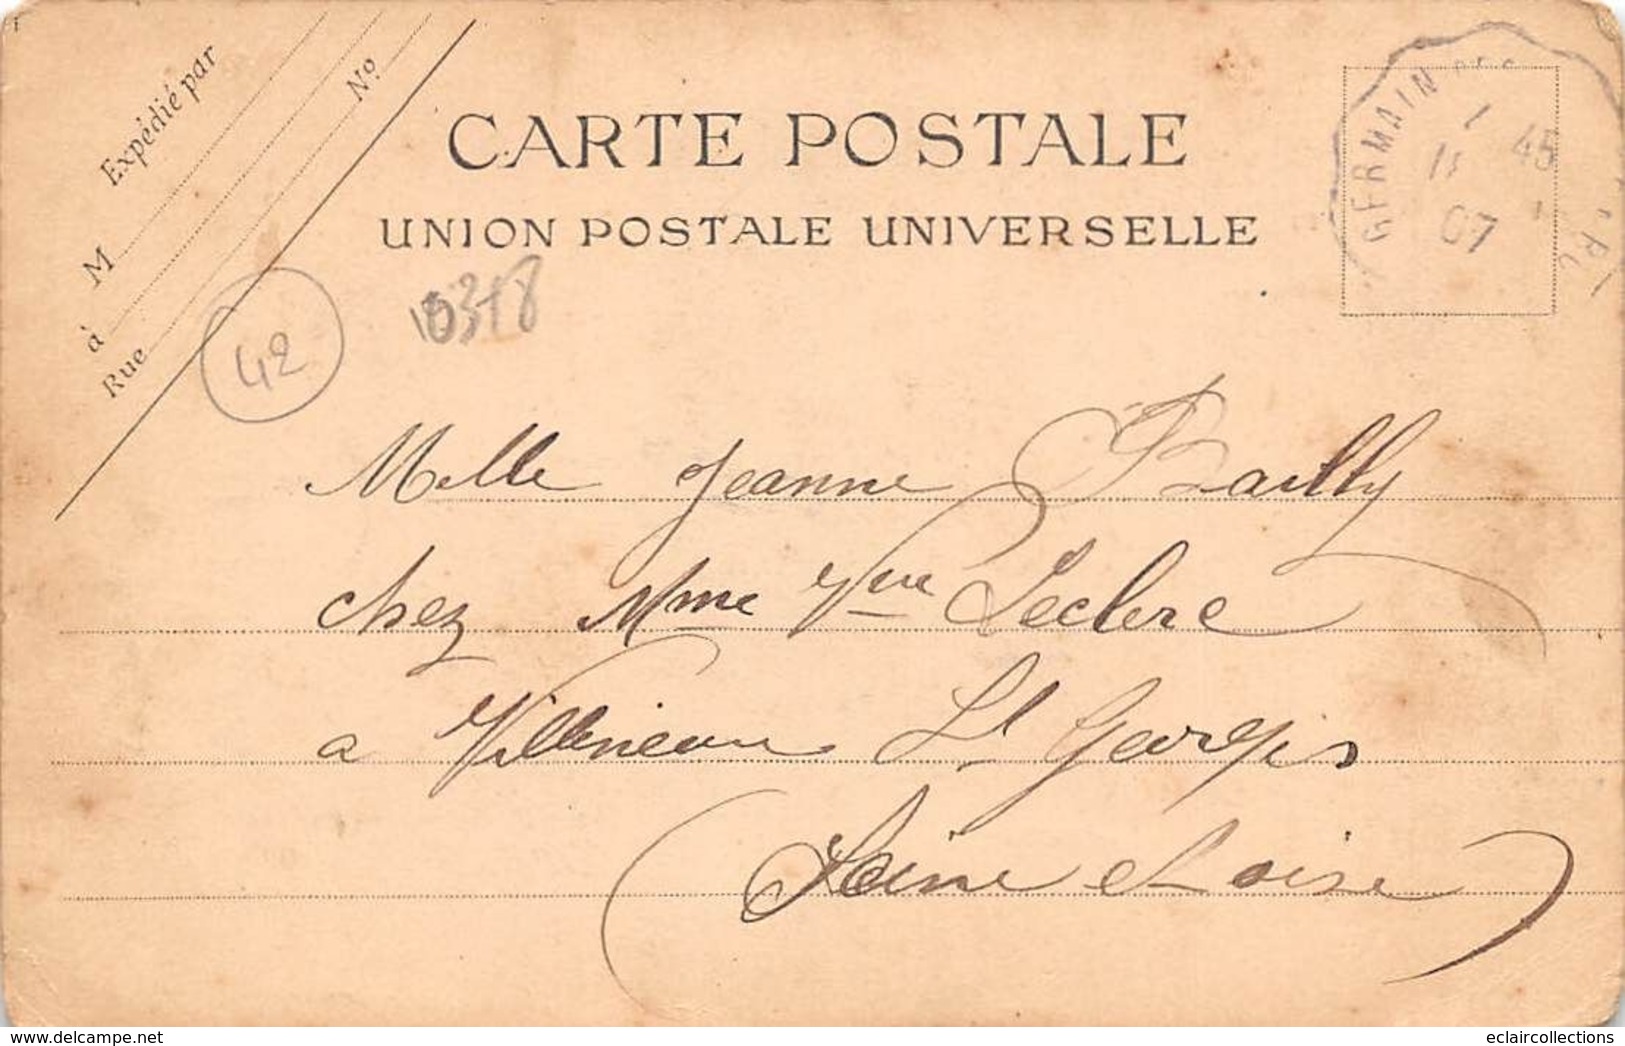 Expédié par
M
No
à
Rue
CARTE POSTALE
UNION POSTALE UNIVERSELLE
GERMAIN
1
45
11
07
42
Melle Jeanne Bailly
chez Mme Vve Leclerc
a Villeneuve St Georges
Seine et oise
www.delcampe.net
eclaircollections